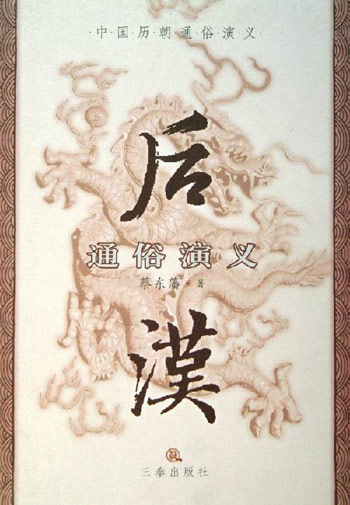 ·中·国·历·朝·通·俗·演·义·
后
通俗演义
蔡东藩·著
漢
三秦出版社